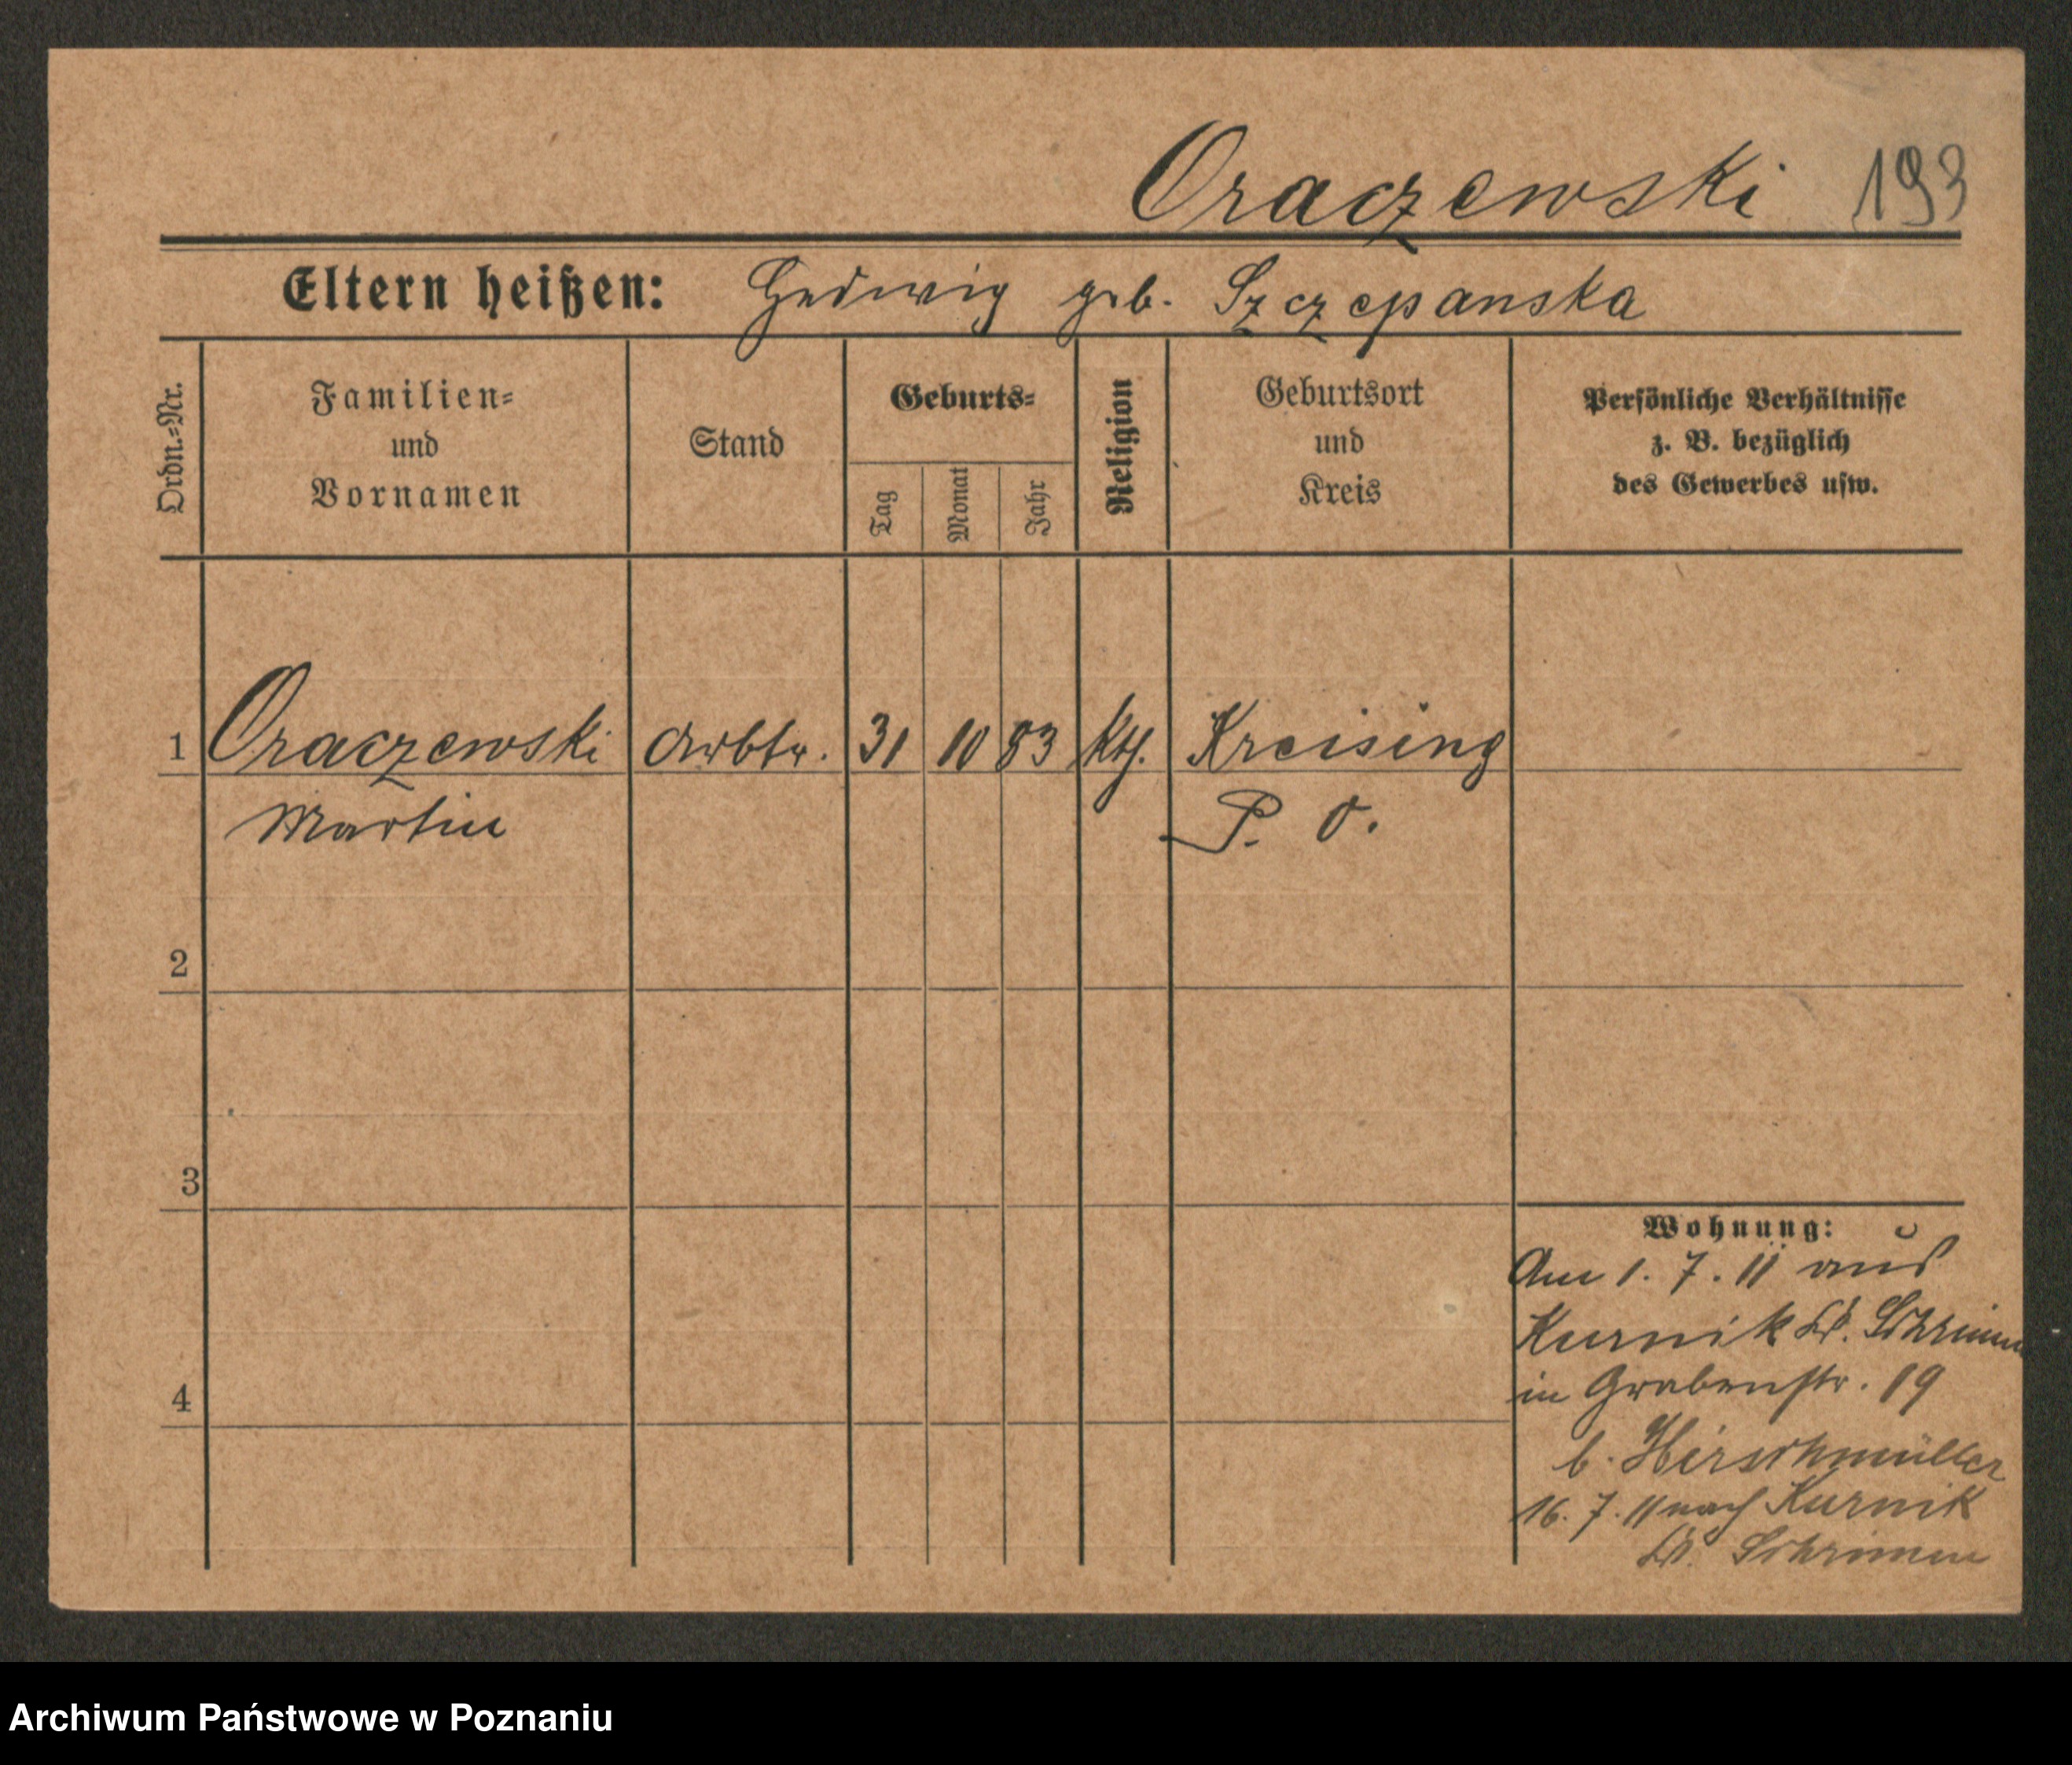 Oraczewski 193
Eltern heißen: Hedwig geb. Szczepanska
Ordn.=Nr.
Familien=
und
Vornamen
Stand
Geburts=
Tag
Monat
Jahr
Religion
Geburtsort
und
Kreis
Persönliche Verhältnisse
z. B. bezüglich
des Gewerbes usw.
1 Oraczewski Arbtr. 31 10 83 kth. Kreising
Martin P. O.
2
3
4
Wohnung:
Am 1. 7. 11 aus
Kurnik Kr. Schrimm
in Grabenstr. 19
b. Hirschmüller
16. 7. 11 nach Kurnik
Kr. Schrimm
Archiwum Państwowe w Poznaniu